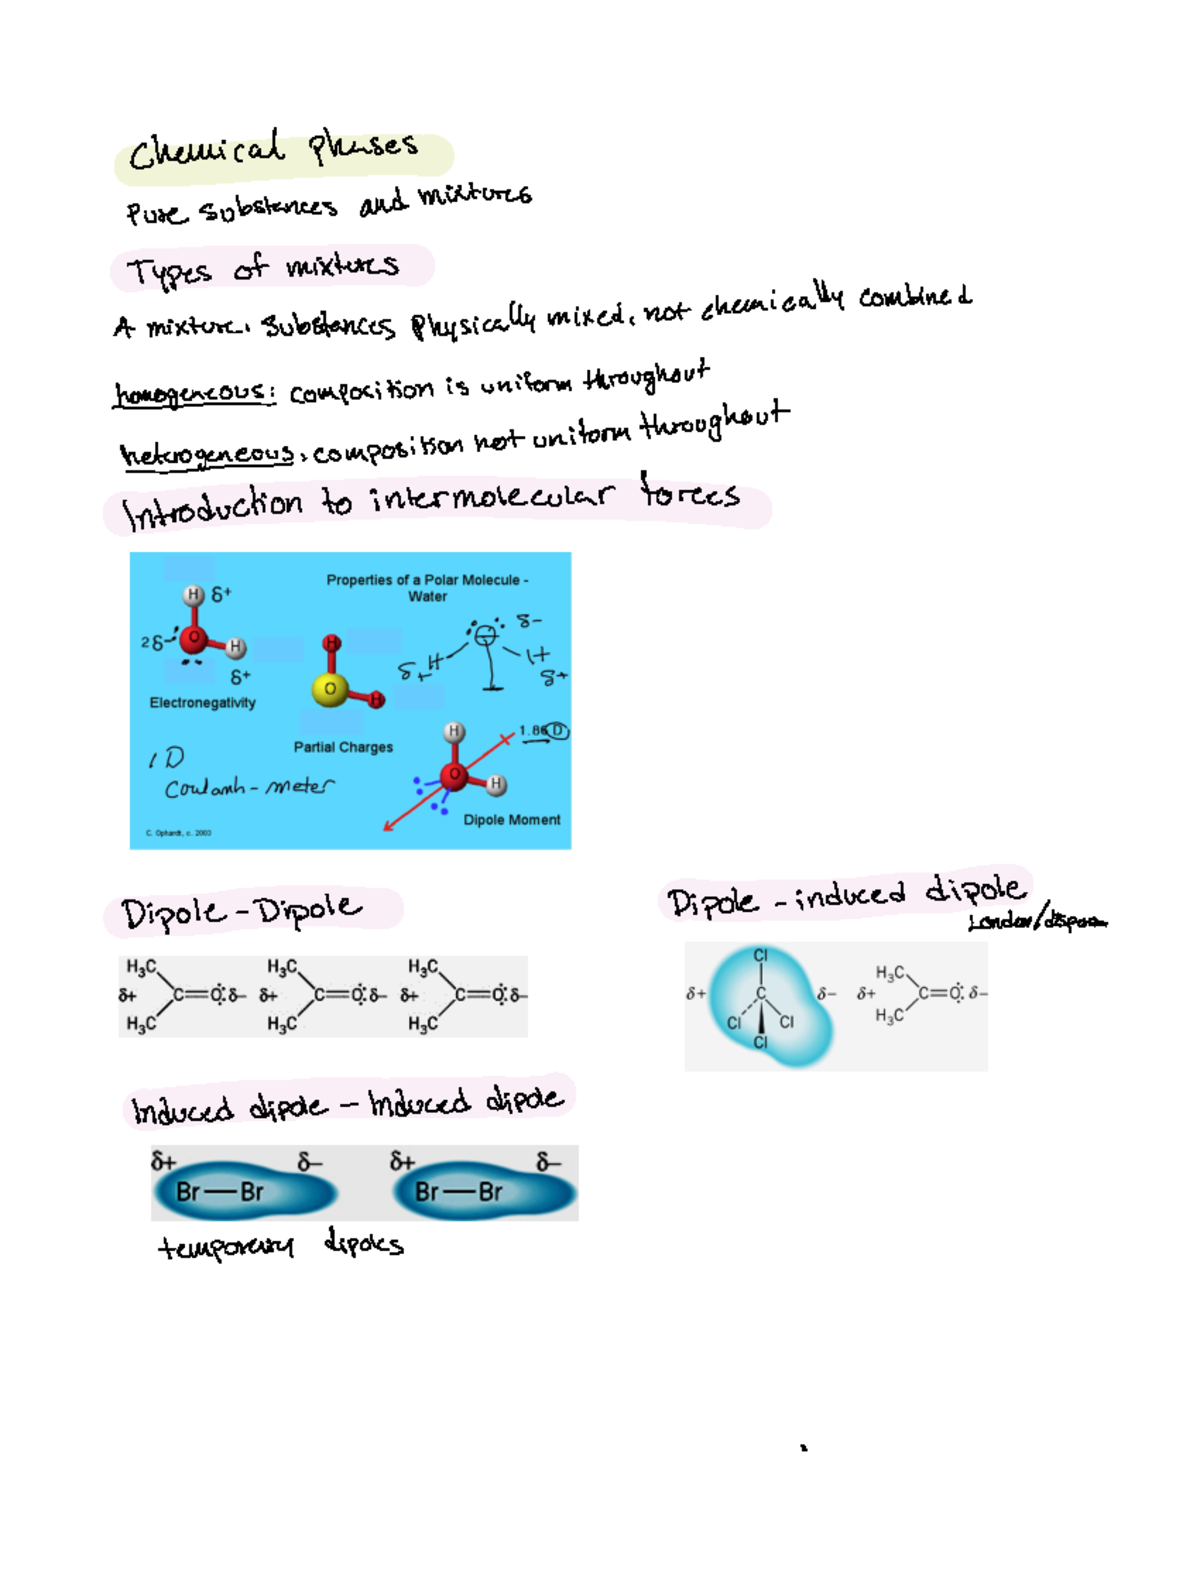 Chemical phases
Pure substances and mixtures
Types of mixtures
A mixture: Substances physically mixed, not chemically combined
homogeneous: composition is uniform throughout
hetrogeneous: composition not uniform throughout
Introduction to intermolecular forces
Properties of a Polar Molecule -
Water
H δ+
2δ- O H
δ+
Electronegativity
H
O H
Partial Charges
δ-
δ+ H H
δ+
1 D
Coulomb - meter
H 1.86 D
O H
Dipole Moment
C. Ophardt, c. 2003
Dipole - Dipole
H₃C H₃C H₃C
δ+ C=O δ- δ+ C=O δ- δ+ C=O δ-
H₃C H₃C H₃C
Dipole - induced dipole
London/
Cl
δ+ C δ- δ+ H₃C C=O δ-
Cl Cl H₃C
Cl
Induced dipole - Induced dipole
δ+ δ- δ+ δ-
Br—Br Br—Br
temporary dipoles